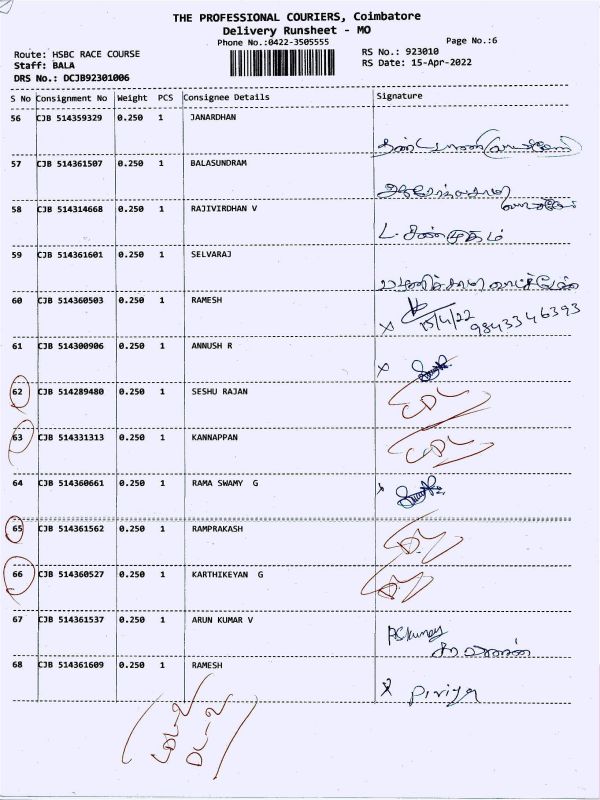 THE PROFESSIONAL COURIERS, Coimbatore
Delivery Runsheet - MO
Phone No.:0422-3505555
Page No.:6
Route: HSBC RACE COURSE
RS No.: 923010
Staff: BALA
RS Date: 15-Apr-2022
DRS No.: DCJB92301006
S No Consignment No Weight PCS Consignee Details Signature
56 CJB 514359329 0.250 1 JANARDHAN
57 CJB 514361507 0.250 1 BALASUNDRAM
58 CJB 514314668 0.250 1 RAJIVIRDHAN V
L. சண்முகம்
59 CJB 514361601 0.250 1 SELVARAJ
60 CJB 514360503 0.250 1 RAMESH
x 15/4/22 9843346393
61 CJB 514300906 0.250 1 ANNUSH R
x
62 CJB 514289480 0.250 1 SESHU RAJAN
CDL
63 CJB 514331313 0.250 1 KANNAPPAN
CDL
64 CJB 514360661 0.250 1 RAMA SWAMY G
x
65 CJB 514361562 0.250 1 RAMPRAKASH
66 CJB 514360527 0.250 1 KARTHIKEYAN G
67 CJB 514361537 0.250 1 ARUN KUMAR V
68 CJB 514361609 0.250 1 RAMESH
x Piriya
CDL-2
DL-2